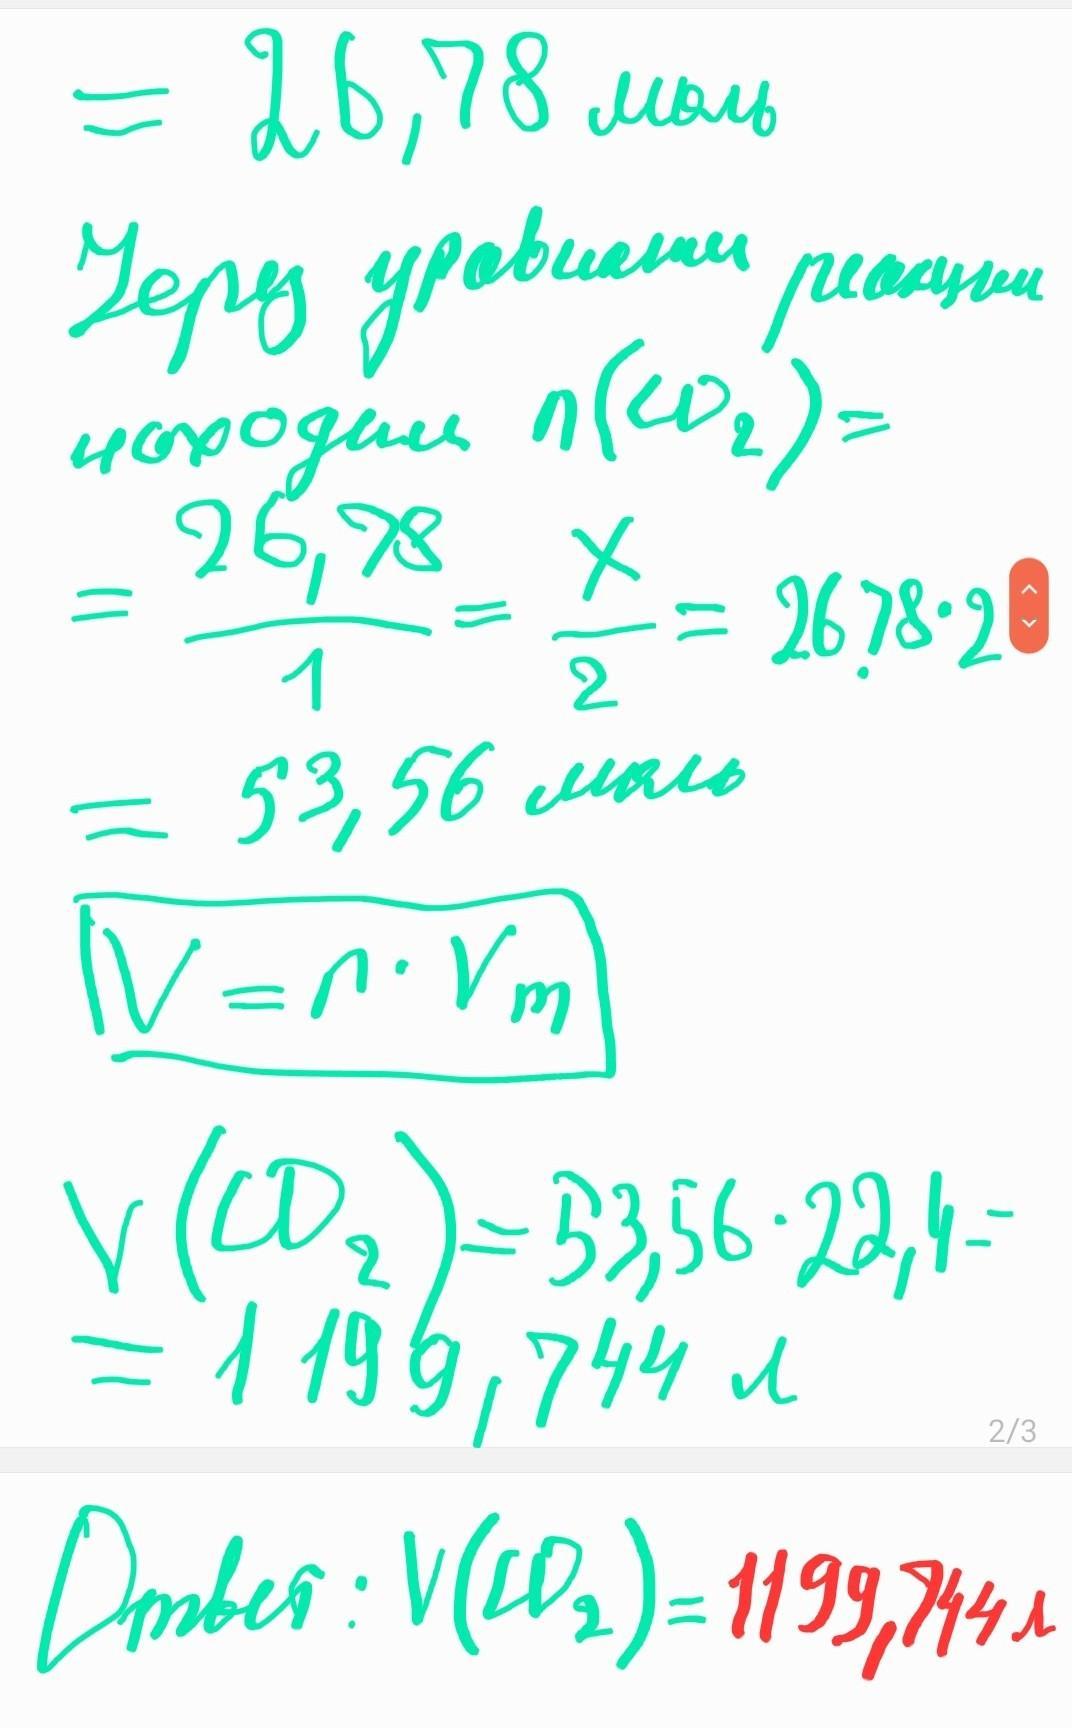 = 26,78 моль
Через уравнении реакции
находим n(CO₂)=
= 26,78/1 = x/2 = 26,78·2
= 53,56 моль
V = n · Vm
V(CO₂)=53,56·22,4=
= 1199,744 л
2/3
Ответ: V(CO₂)=1199,744 л